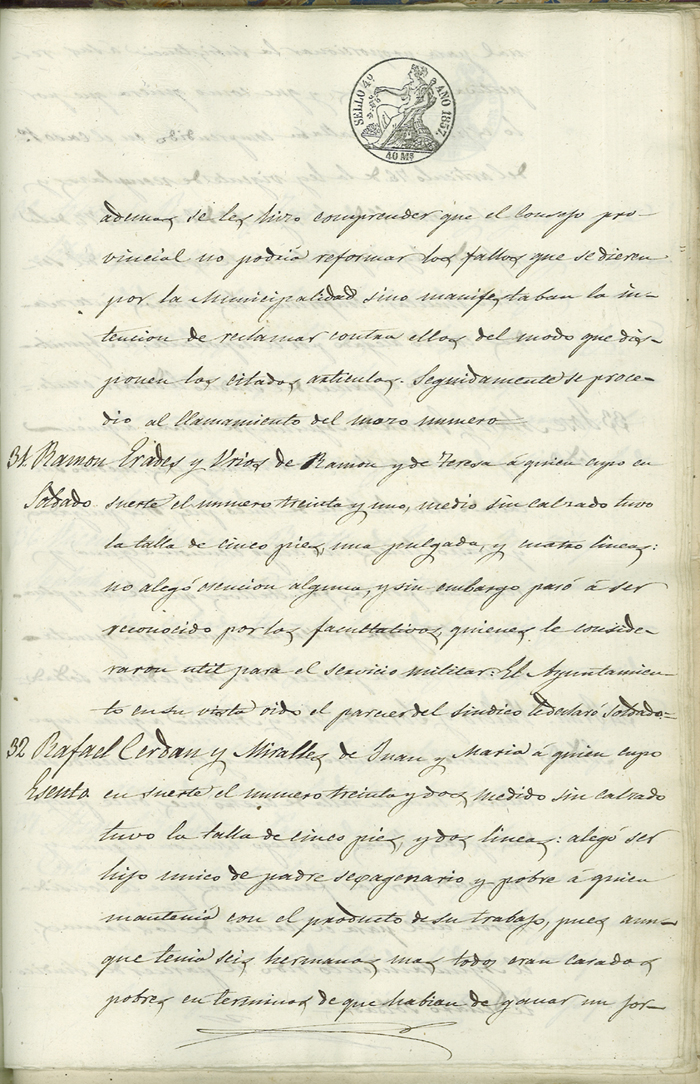 SELLO 4º AÑO 1857.
40 Ms
ademas se les hizo comprender que el Consejo pro-
vincial no podria reformar los fallos que se dieren
por la Municipalidad sino manifestaban la in-
tencion de reclamar contra ellos del modo que dis-
ponen los citados articulos. Seguidamente se proce-
dio al llamamiento del mozo numero
31. Ramon Erades y Urios de Ramon y de Teresa á quien cupo en
Soldado suerte el numero treinta y uno, medio sin calzado tuvo
la talla de cinco pies, una pulgada, y cuatro lineas:
no alegó esencion alguna, y sin embargo pasó á ser
reconocido por los facultativos, quienes le conside-
raron util para el servicio militar: El Ayuntamien-
to en su vista oido el parecer del sindico le declaró soldado.
32 Rafael Cerdan y Miralles de Juan y Maria á quien cupo
Esento en suerte el numero treinta y dos, medido sin calzado
tuvo la talla de cinco pies, y dos lineas: alegó ser
hijo unico de padre sexagenario y pobre á quien
mantenia con el producto de su trabajo, pues aun-
que tenia seis hermanos mas todos eran casados
pobres en terminos de que habian de ganar un jor-